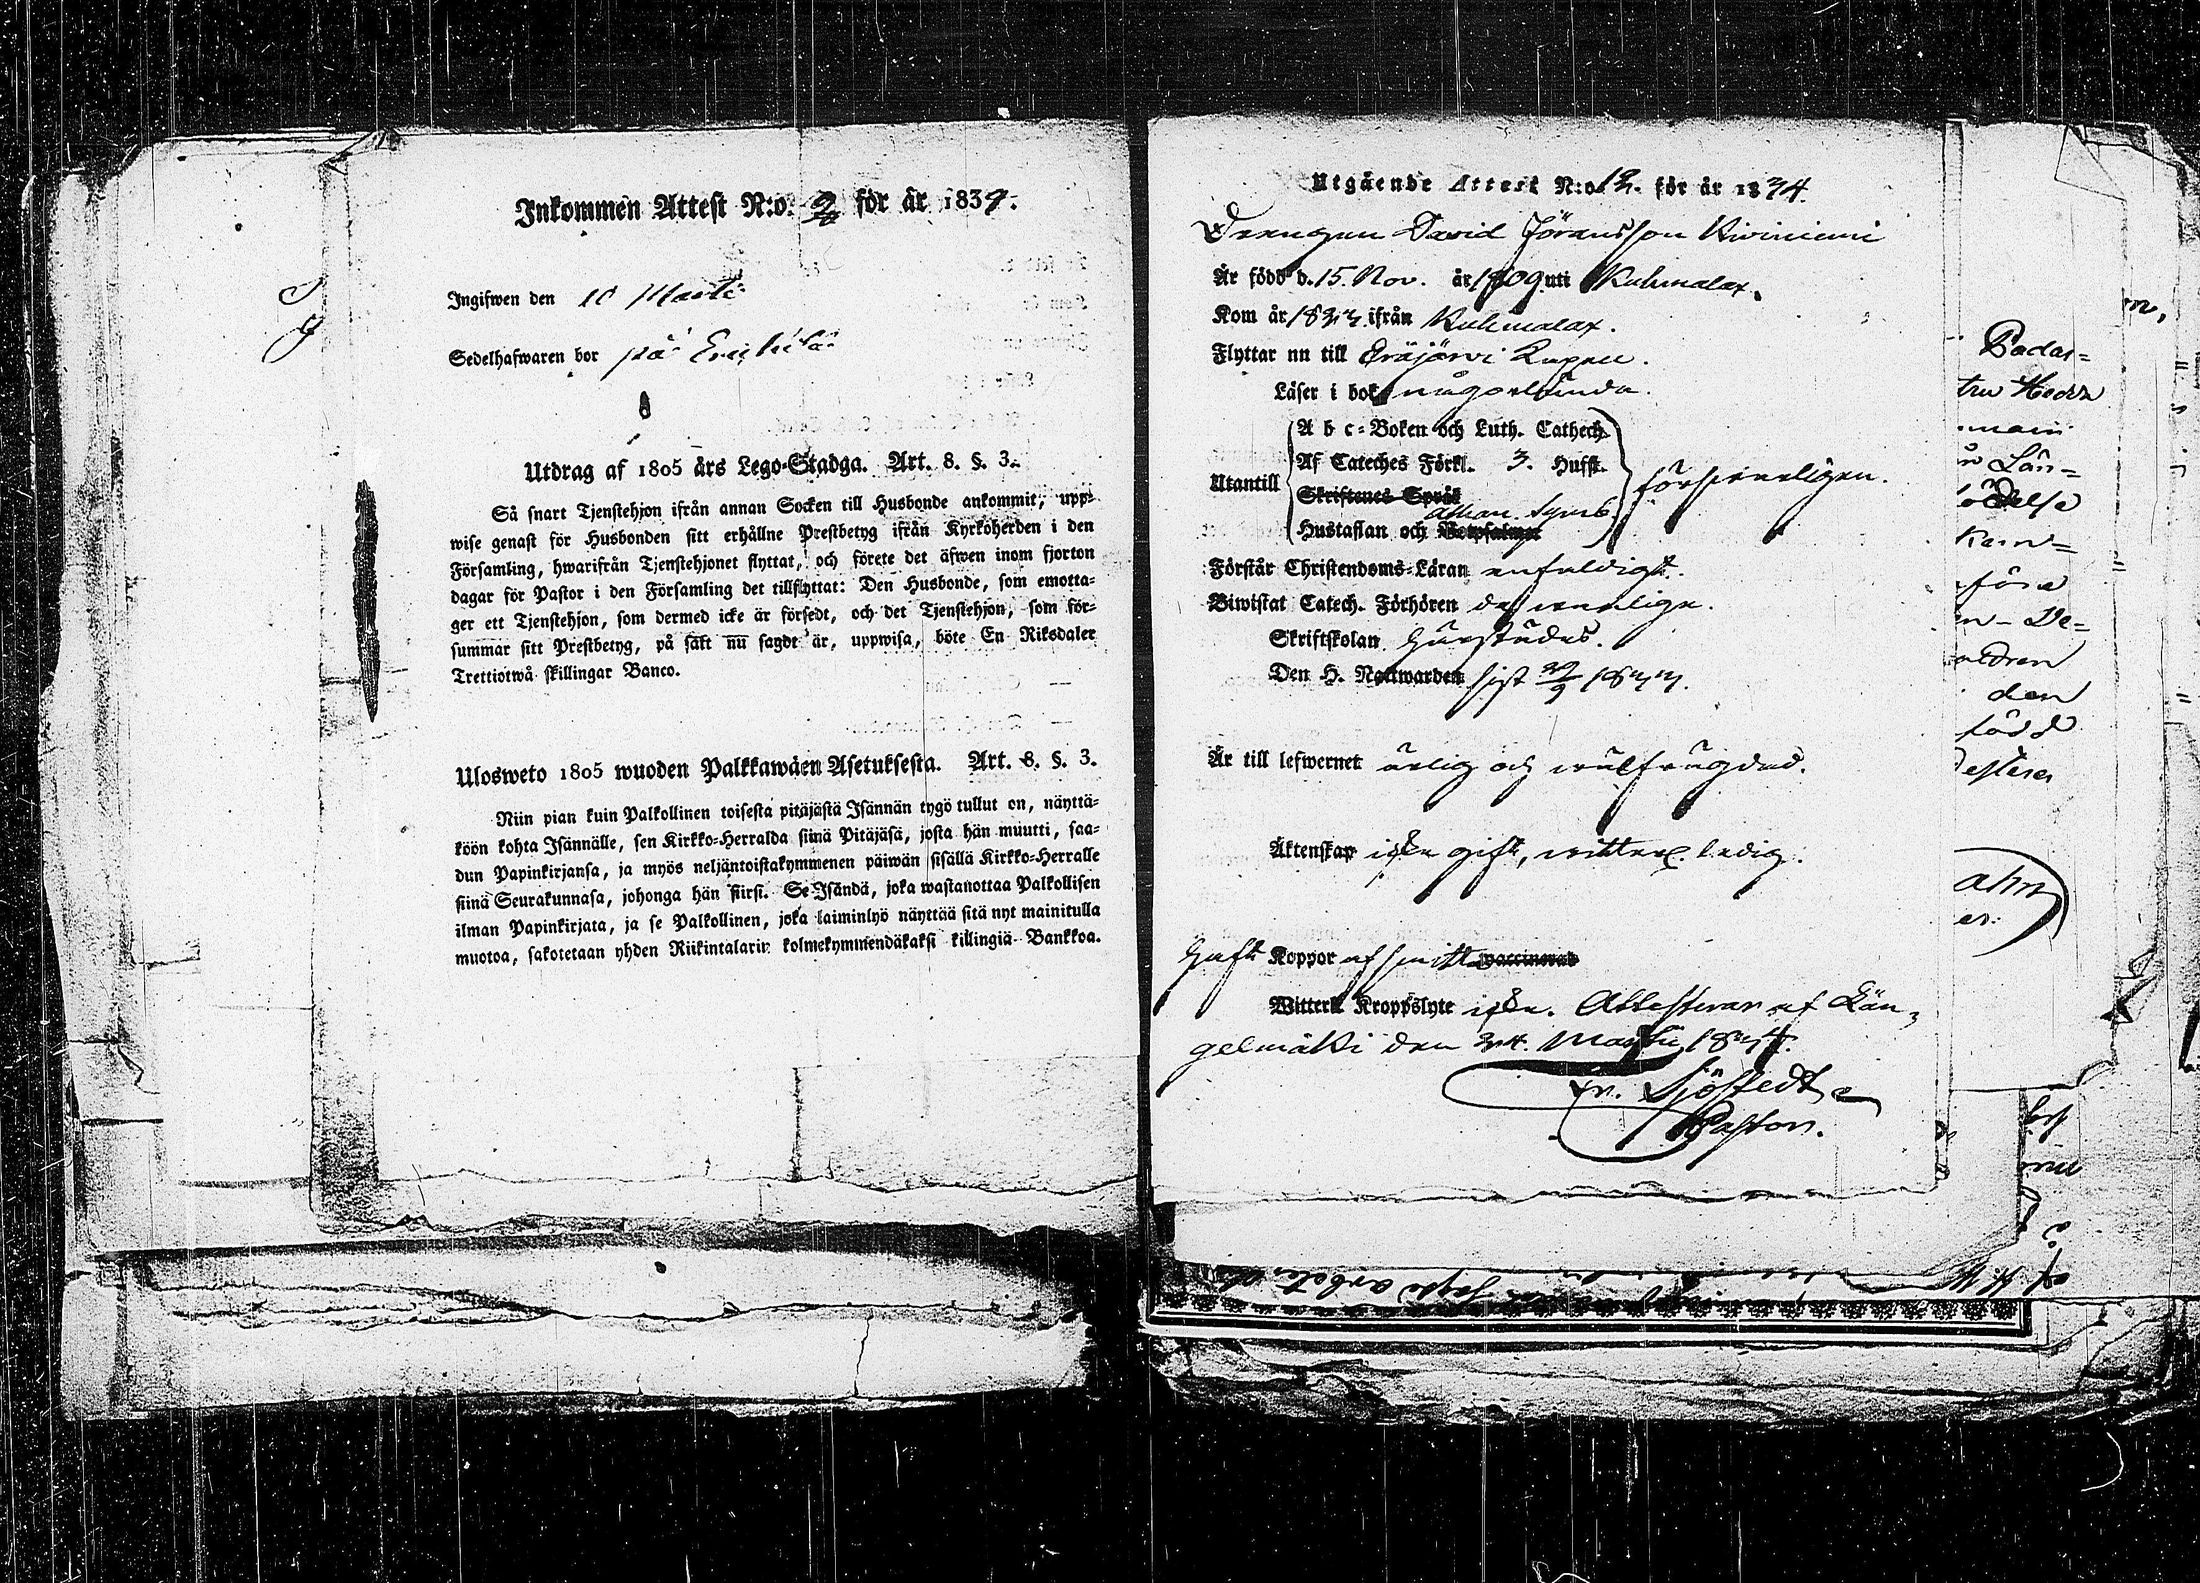 Inkommen Attest N:o. 2 för år 1834.
Ingifwen den 10 Martii
Sedelhafwaren bor på Erickilä
Utdrag af 1805 års Lego-Stadga. Art. 8. §. 3.
Så snart Tjenstehjon ifrån annan Socken till Husbonde ankommit, upp-
wise genast för Husbonden sitt erhållne Prestbetyg ifrån Kyrkoherden i den
Församling, hwarifrån Tjenstehjonet flyttat, och förete det äfwen inom fjorton
dagar för Pastor i den Församling det tillflyttat: Den Husbonde, som emotta-
ger ett Tjenstehjon, som dermed icke är försedt, och det Tjenstehjon, som för-
summar sitt Prestbetyg, på sätt nu sagdt är, uppwisa, böte En Riksdaler
Trettiotwå skillingar Banco.
Ulosweto 1805 wuoden Palkkawäen Asetuksesta. Art. 8. §. 3.
Niin pian kuin Palkollinen toisesta pitäjästä Isännän tygö tullut on, näyttä-
köön kohta Isännälle, sen Kirkko-Herralda siinä Pitäjäsä, josta hän muutti, saa-
dun Papinkirjansa, ja myös neljäntoistakymmenen päiwän sisällä Kirkko-Herralle
siinä Seurakunnasa, johonga hän siirsi. Se Isändä, joka wastanottaa Palkollisen
ilman Papinkirjata, ja se Palkollinen, joka laiminlyö näyttää sitä nyt mainitulla
muotoa, sakotetaan yhden Riikintalarin kolmekymmendäkaksi killingiä Bankkoa.
Utgående Attest N:o 12. för år 1834.
Drengen David Göransson Kiviniemi
Är född d. 15. Nov. år 1809 uti Kuhmalax.
Kom år 1833 ifrån Kuhmalax.
Flyttar nu till Eräjärvi Kapell.
Läser i bok någorlunda.
Utantill
A b c-Boken och Luth. Cathech.
Af Cateches Förkl. 3. Hufst.
Skriftenes Språk
Athan. Symb
Hustaflan och
försvarligen.
Förstår Christendoms-Läran enfaldigt.
Biwistat Catech. Förhören
Skriftskolan
Den H. Nattwarden sist 30/9 1833.
Är till lefwernet ärlig och wälfrägdad.
Äktenskap icke gift, witterl. ledig.
Haft Koppor af smitta vaccinerad
Witterl. Kroppslyte icke. Attesterar af Län-
gelmäki den 24. Martii 1834.
Sjöstedt
Pastor.
Padas-
den
född